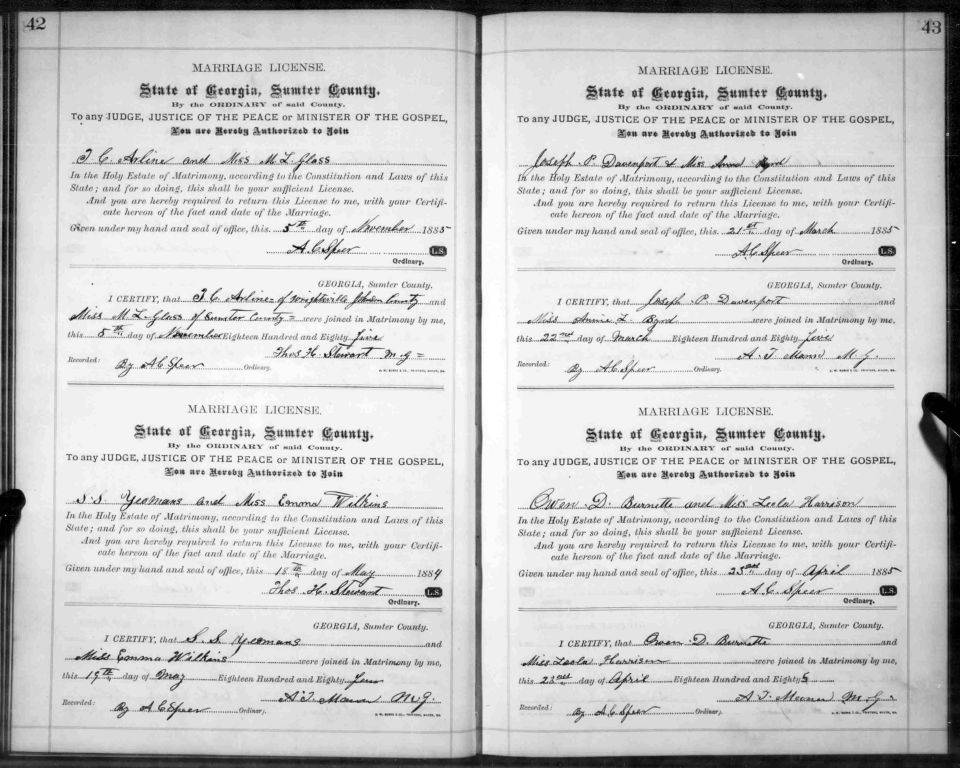 42
MARRIAGE LICENSE.
State of Georgia, Sumter County.
By the ORDINARY of said County.
To any JUDGE, JUSTICE OF THE PEACE or MINISTER OF THE GOSPEL,
You are Hereby Authorized to Join
T C Arline and Miss M L Glass
In the Holy Estate of Matrimony, according to the Constitution and Laws of this
State; and for so doing, this shall be your sufficient License.
And you are hereby required to return this License to me, with your Certifi-
cate hereon of the fact and date of the Marriage.
Given under my hand and seal of office, this 5th day of November 1885
A C Speer L.S.
Ordinary.
GEORGIA, Sumter County.
I CERTIFY, that T. C. Arline of Wrightsville Johnson County and
Miss M. L. Glass of Sumter County = were joined in Matrimony by me,
this 5th day of November Eighteen Hundred and Eighty five
Thos H. Stewart M. G =
Recorded:
By A C Speer Ordinary.
MARRIAGE LICENSE.
State of Georgia, Sumter County.
By the ORDINARY of said County.
To any JUDGE, JUSTICE OF THE PEACE or MINISTER OF THE GOSPEL,
You are Hereby Authorized to Join
S. S. Yeomans and Miss Emma Wilkins
In the Holy Estate of Matrimony, according to the Constitution and Laws of this
State; and for so doing, this shall be your sufficient License.
And you are hereby required to return this License to me, with your Certifi-
cate hereon of the fact and date of the Marriage.
Given under my hand and seal of office, this 18th day of May 1884
Thos H. Stewart L.S.
Ordinary.
GEORGIA, Sumter County.
I CERTIFY, that S. S. Yeomans and
Miss Emma Wilkins were joined in Matrimony by me,
this 19th day of May Eighteen Hundred and Eighty four
A. T. Mann M. G.
Recorded:
By A C Speer Ordinary.
43
MARRIAGE LICENSE.
State of Georgia, Sumter County.
By the ORDINARY of said County.
To any JUDGE, JUSTICE OF THE PEACE or MINISTER OF THE GOSPEL,
You are Hereby Authorized to Join
Joseph P. Davenport & Miss Annie Byrd
In the Holy Estate of Matrimony, according to the Constitution and Laws of this
State; and for so doing, this shall be your sufficient License.
And you are hereby required to return this License to me, with your Certifi-
cate hereon of the fact and date of the Marriage.
Given under my hand and seal of office, this 21st day of March 1885
A. C. Speer L.S.
Ordinary.
GEORGIA, Sumter County.
I CERTIFY, that Joseph P. Davenport and
Miss Annie L. Byrd were joined in Matrimony by me,
this 22nd day of March Eighteen Hundred and Eighty five
A. T. Mann M. G.
Recorded:
By A. C. Speer Ordinary.
MARRIAGE LICENSE.
State of Georgia, Sumter County.
By the ORDINARY of said County.
To any JUDGE, JUSTICE OF THE PEACE or MINISTER OF THE GOSPEL,
You are Hereby Authorized to Join
Owen D. Burnette and Miss Leola Harrison
In the Holy Estate of Matrimony, according to the Constitution and Laws of this
State; and for so doing, this shall be your sufficient License.
And you are hereby required to return this License to me, with your Certifi-
cate hereon of the fact and date of the Marriage.
Given under my hand and seal of office, this 23rd day of April 1885
A. C. Speer L.S.
Ordinary.
GEORGIA, Sumter County.
I CERTIFY, that Owen D. Burnette and
Miss Leola Harrison were joined in Matrimony by me,
this 23rd day of April Eighteen Hundred and Eighty 5
A. T. Mann M. G.
Recorded:
By A. C. Speer Ordinary.